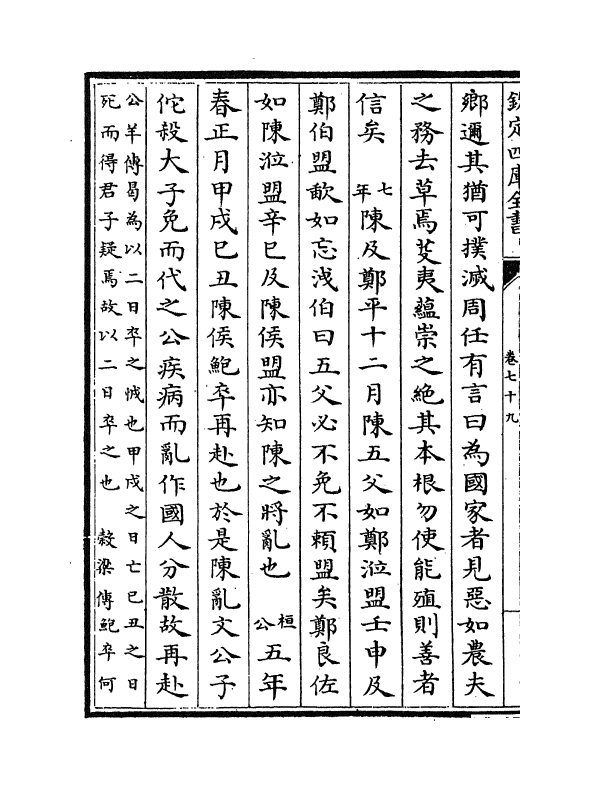 欽定四庫全書
卷七十九
鄉邇其猶可撲滅周任有言曰為國家者見惡如農夫
之務去草焉芟夷蘊崇之絶其本根勿使能殖則善者
信矣 七年 陳及鄭平十二月陳五父如鄭涖盟壬申及
鄭伯盟歃如忘洩伯曰五父必不免不賴盟矣鄭良佐
如陳涖盟辛巳及陳侯盟亦知陳之將亂也 桓公 五年
春正月甲戌巳丑陳侯鮑卒再赴也於是陳亂文公子
佗殺大子免而代之公疾病而亂作國人分散故再赴
公羊傳曷為以二日卒之怴也甲戌之日亡巳丑之日
死而得君子疑焉故以二日卒之也 穀梁傳鮑卒何